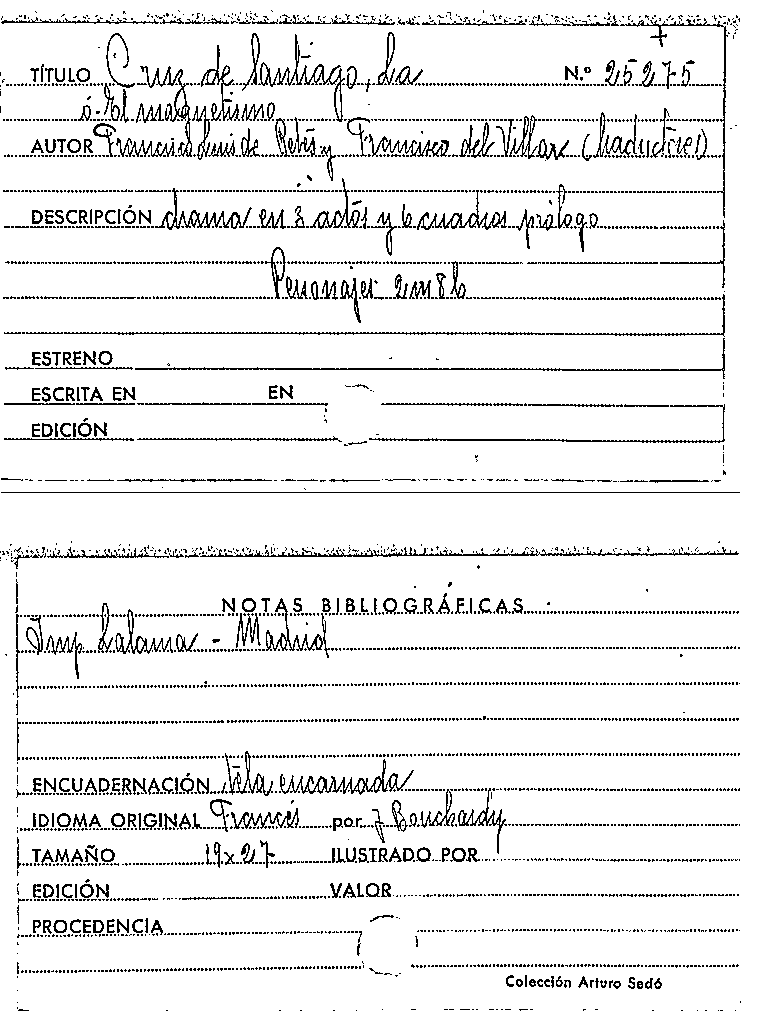 +
TÍTULO Cruz de Santiago, La N.º 25275
ó. El magnetismo
AUTOR Francisco Luis de Retés y Francisco del Villar (traductores)
DESCRIPCIÓN drama en 3 actos y 6 cuadros prólogo
Personajes 2m 8h
ESTRENO
ESCRITA EN EN
EDICIÓN
NOTAS BIBLIOGRÁFICAS
Imp Lalama - Madrid
ENCUADERNACIÓN tela encarnada
IDIOMA ORIGINAL Francés por J Bouchardy
TAMAÑO 19x27 ILUSTRADO POR
EDICIÓN VALOR
PROCEDENCIA
Colección Arturo Sedó